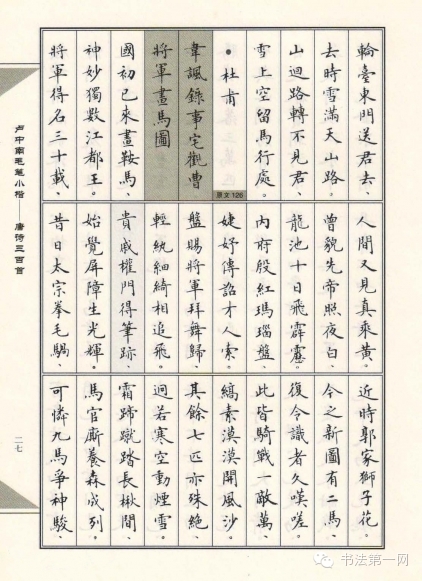 輪臺東門送君去、
去時雪滿天山路。
山迴路轉不見君、
雪上空留馬行處。
• 杜甫
韋諷錄事宅觀曹
將軍畫馬圖
原文 126
國初已來畫鞍馬、
神妙獨數江都王。
將軍得名三十載、
人間又見真乘黃。
曾貌先帝照夜白、
龍池十日飛霹靂。
內府殷紅瑪瑙盤、
婕妤傳詔才人索。
盤賜將軍拜舞歸、
輕紈細綺相追飛。
貴戚權門得筆跡、
始覺屏障生光輝。
昔日太宗拳毛騧、
近時郭家獅子花。
今之新圖有二馬、
復令識者久嘆嗟。
此皆騎戰一敵萬、
縞素漠漠開風沙。
其餘七匹亦殊絕、
迥若寒空動煙雪。
霜蹄蹴踏長楸間、
馬官廝養森成列。
可憐九馬爭神駿、
卢中南毛笔小楷——唐诗三百首
二七
书法第一网